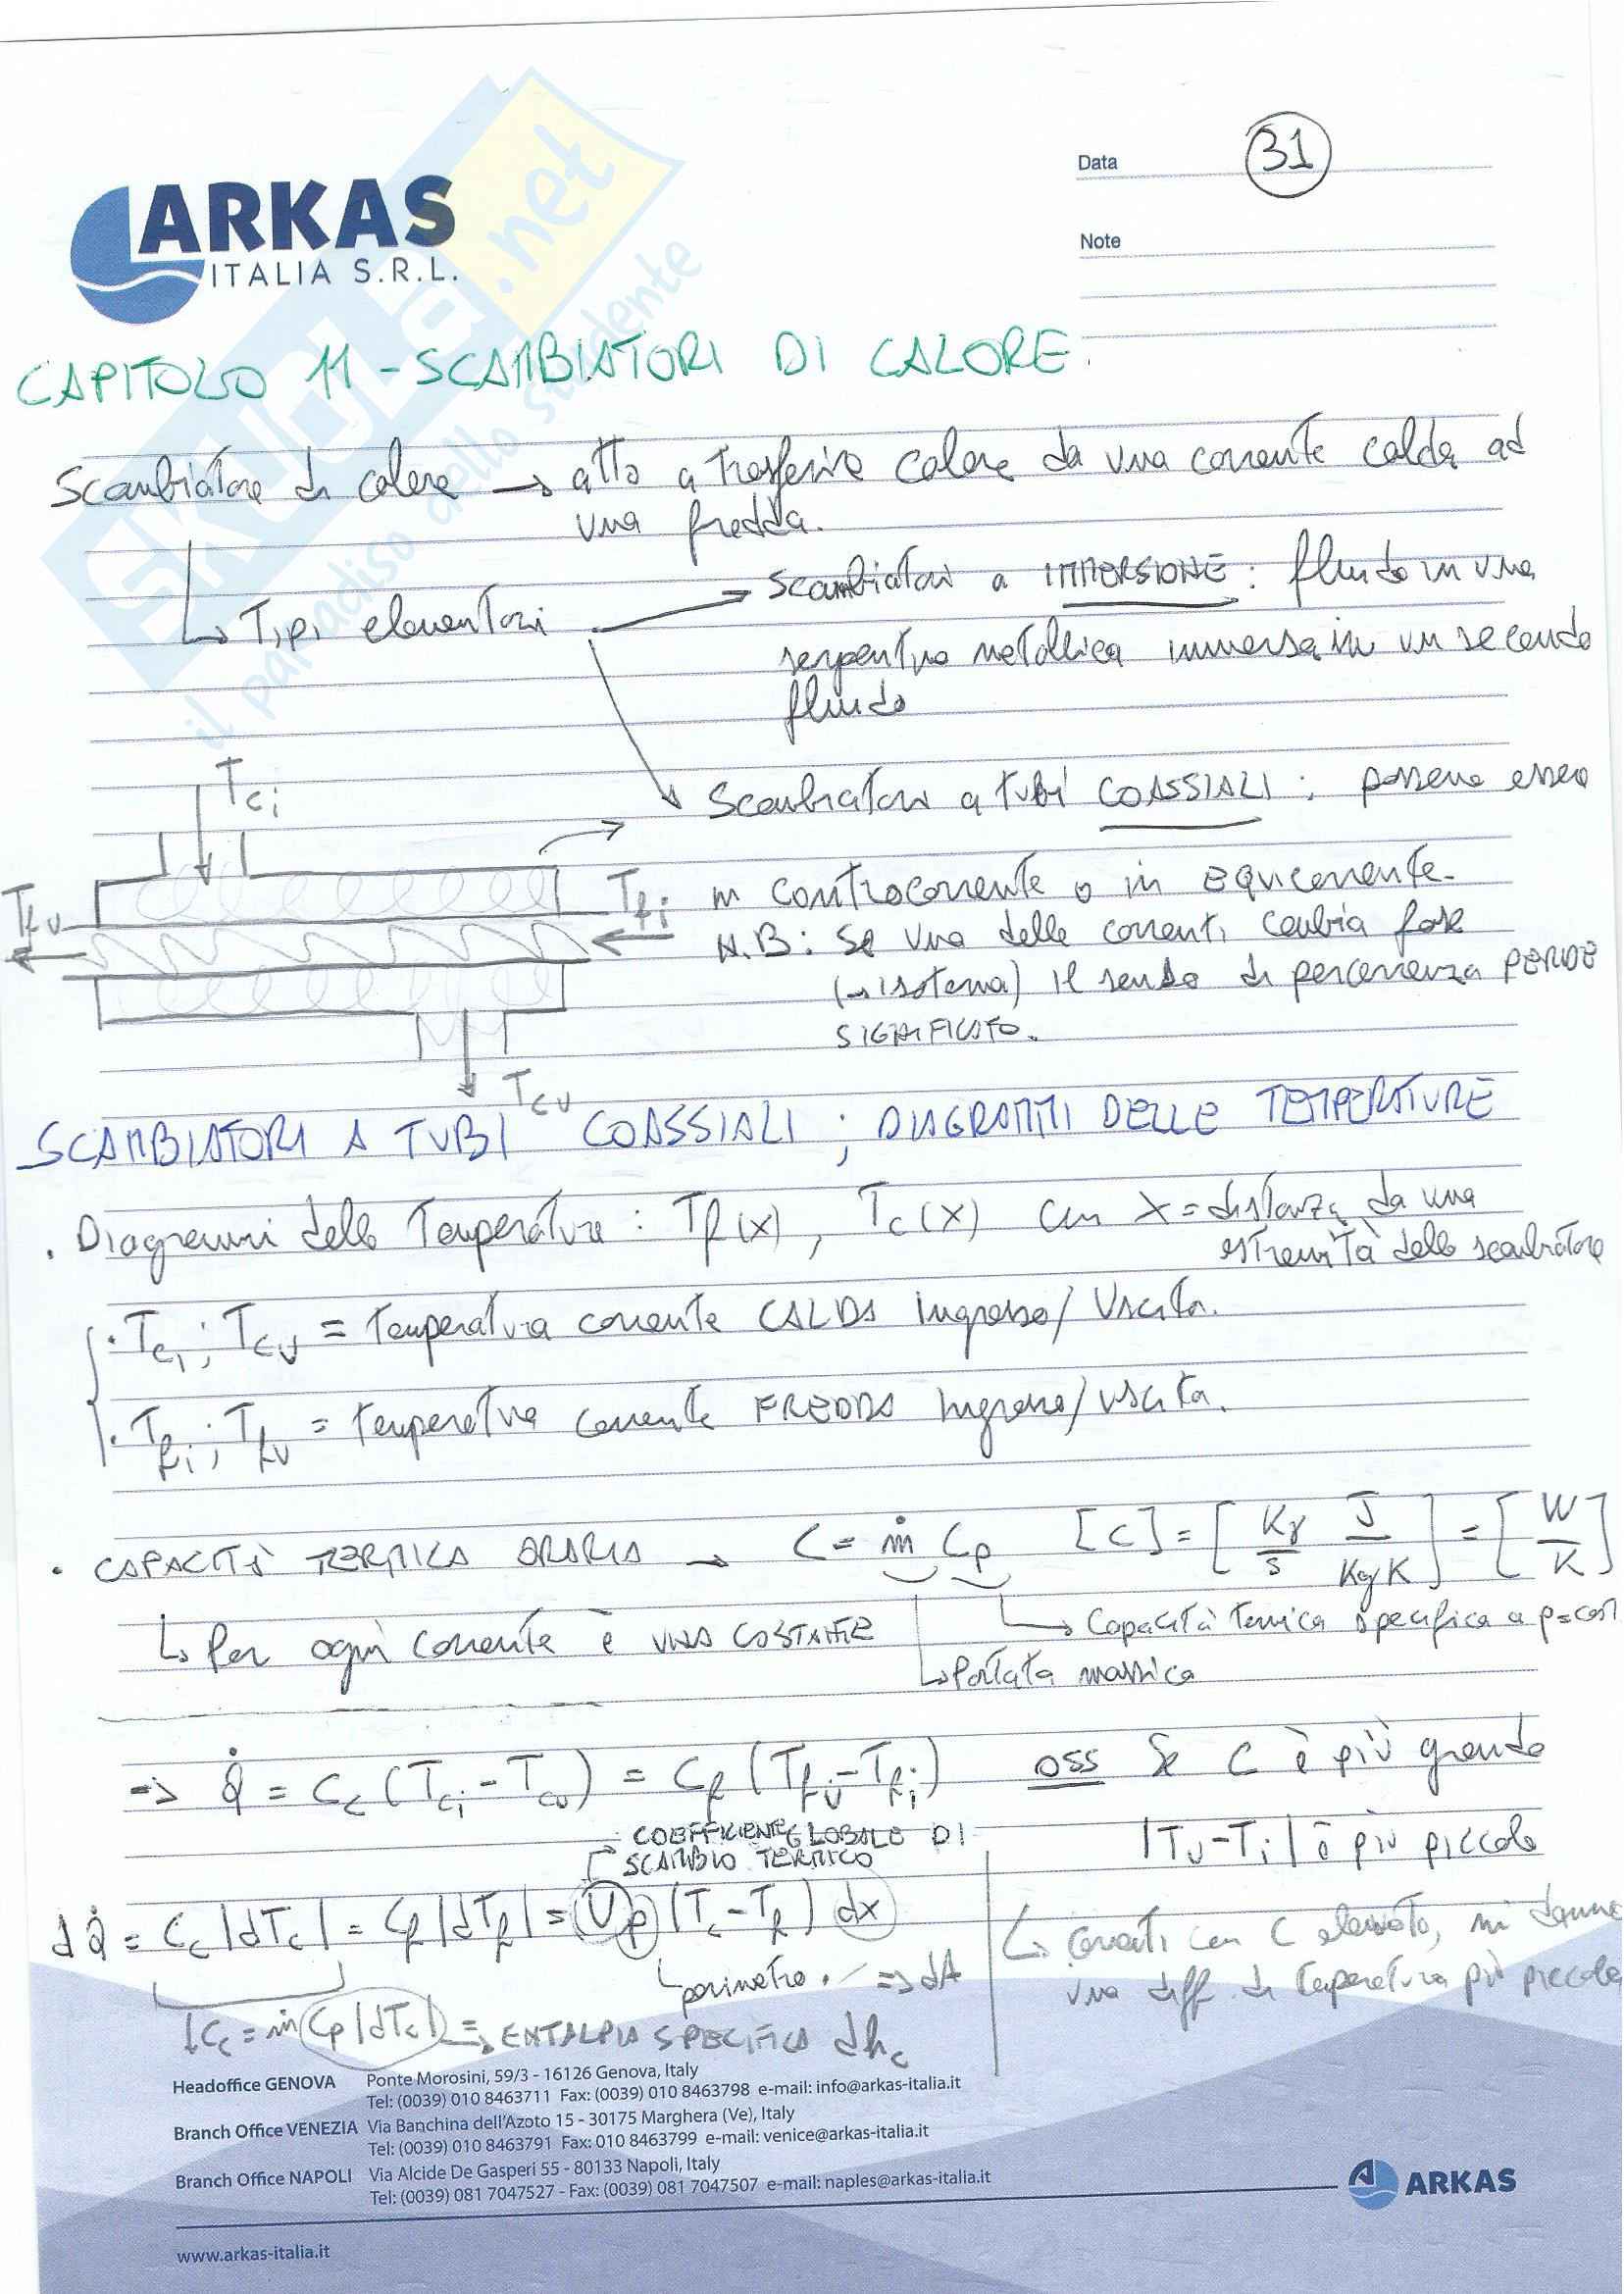 Data 31
ARKAS
ITALIA S.R.L.
Note
SKUOLA.net
il paradiso dello studente
CAPITOLO 11 - SCAMBIATORI DI CALORE.
Scambiatore di calore → atto a trasferire calore da una corrente calda ad
una fredda.
↳ Tipi elementari
Scambiatori a IMMERSIONE: fluido in una
serpentina metallica immersa in un secondo
fluido
Tci
Scambiatori a tubi COASSIALI; possono essere
Tfu
Tfi
in controcorrente o in equicorrente.
N.B: Se una delle correnti cambia fase
(→ isoterma) il senso di percorrenza PERDE
SIGNIFICATO.
Tcu
SCAMBIATORI A TUBI COASSIALI; DIAGRAMMI DELLE TEMPERATURE
• Diagrammi delle Temperature: Tf(x), Tc(x) con x = distanza da una
estremità dello scambiatore
• Tci; Tcu = temperatura corrente CALDA Ingresso/Uscita.
• Tfi; Tfu = temperatura corrente FREDDA Ingresso/uscita.
• CAPACITÀ TERMICA ORARIA → C = ṁ Cp [C] = [Kg/s J/KgK] = [W/K]
↳ Per ogni corrente è una COSTANTE
↳ Capacità termica specifica a p=cost
↳ Portata massica
=> Q̇ = Cc (Tci - Tcu) = Cf (Tfu - Tfi) oss Se C è più grande
|Tu - Ti| è più piccolo
COEFFICIENTE GLOBALE DI
SCAMBIO TERMICO
dQ̇ = Cc |dTc| = Cf |dTf| = Up (Tc - Tf) dx
↳ perimetro. => dA
↳ Correnti con C elevato, mi danno
una diff. di temperatura più piccola
↓Cc = ṁ Cp |dTc| => ENTALPIA SPECIFICA dhc
Headoffice GENOVA Ponte Morosini, 59/3 - 16126 Genova, Italy
Tel: (0039) 010 8463711 Fax: (0039) 010 8463798 e-mail: info@arkas-italia.it
Branch Office VENEZIA Via Banchina dell'Azoto 15 - 30175 Marghera (Ve), Italy
Tel: (0039) 010 8463791 Fax: 010 8463799 e-mail: venice@arkas-italia.it
Branch Office NAPOLI Via Alcide De Gasperi 55 - 80133 Napoli, Italy
Tel: (0039) 081 7047527 - Fax: (0039) 081 7047507 e-mail: naples@arkas-italia.it
ARKAS
www.arkas-italia.it